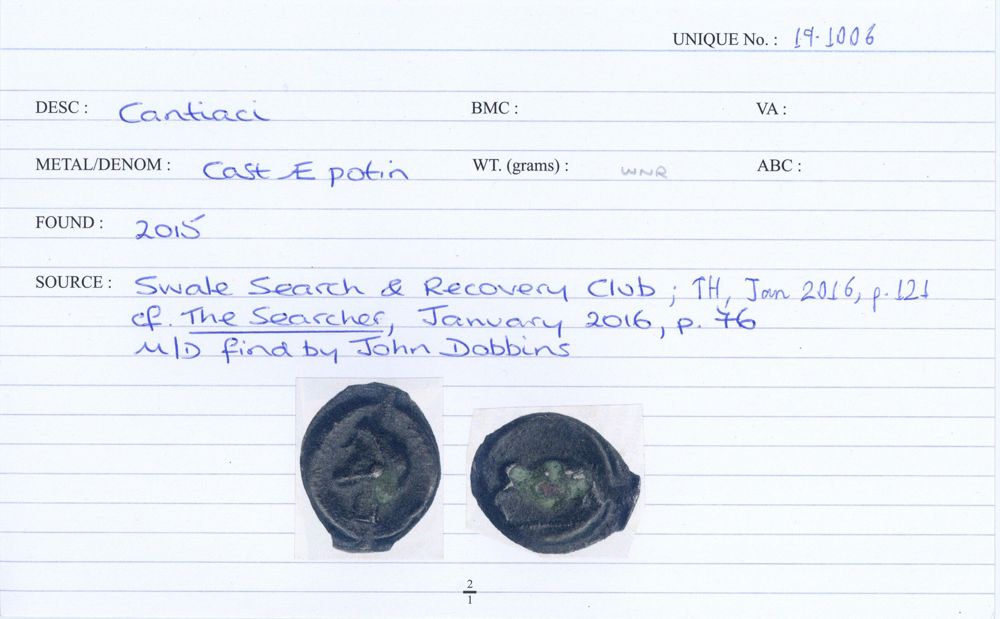 UNIQUE No. : 19.1006
DESC : Cantiaci BMC : VA :
METAL/DENOM : Cast Æ potin WT. (grams) : WNR ABC :
FOUND : 2015
SOURCE : Swale Search & Recovery Club ; TH, Jan 2016, p. 121
cf. The Searcher, January 2016, p. 76
M/D find by John Dobbins
2
1